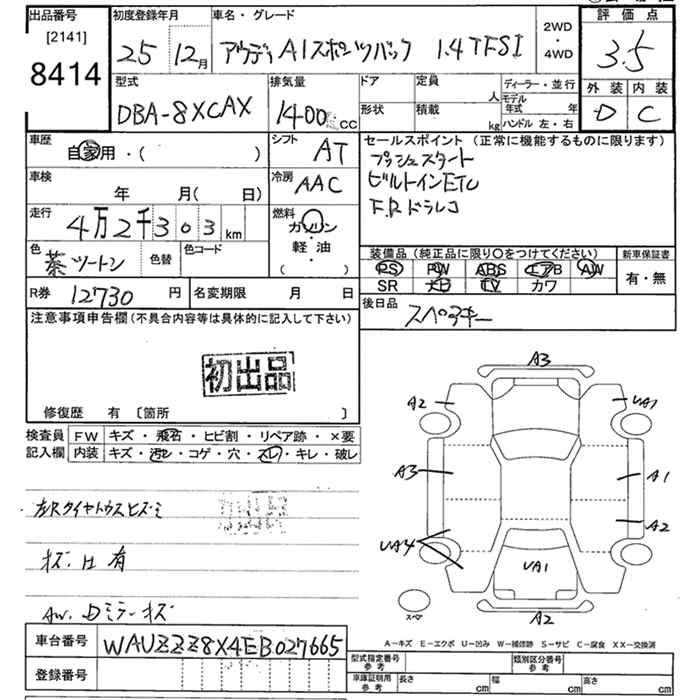 出品番号
[2141]
8414
初度登録年月
25 12月
車名・グレード
アウディ A1スポーツバック 1.4TFSI
2WD
・
4WD
評価点
3.5
外装 内装
D C
型式
DBA-8XCAX
排気量
1400 cc
ドア
形状
定員 人
積載 kg
ディーラー・並行
モデル年式 年
ハンドル 左・右
車歴
自家用・( )
シフト
AT
車検
年 月( 日)
冷房
AAC
走行
4万2千303km
燃料
ガソリン
軽・油
( )
色
茶ツートン
色替
色コード
R券 12730 円
名変期限 月 日
セールスポイント (正常に機能するものに限ります)
プッシュスタート
ビルトインETC
F.Rドラレコ
装備品 (純正品に限り○をつけてください)
PS PW ABS エアB AW
SR ナビ TV カワ
新車保証書
有・無
後日品
スペアキー
注意事項申告欄(不具合内容等は具体的に記入して下さい)
初出品
修復歴 有 〔箇所 〕
検査員記入欄
FW キズ・飛石・ヒビ割・リペア跡・×要
内装 キズ・汚レ・コゲ・穴・スレ・キレ・破レ
キズ・凹 有
AW. Dミラーキズ
A3
A2
UA1
A3
A1
A2
UA4
UA1
A2
スペア
A－キズ E－エクボ U－凹み W－補修跡 S－サビ C－腐食 XX－交換済
車台番号
WAUZZZ8X4EB027665
登録番号
型式指定番号 参考
類別区分番号 参考
車庫証明用 参考
長さ cm
幅 cm
高さ cm